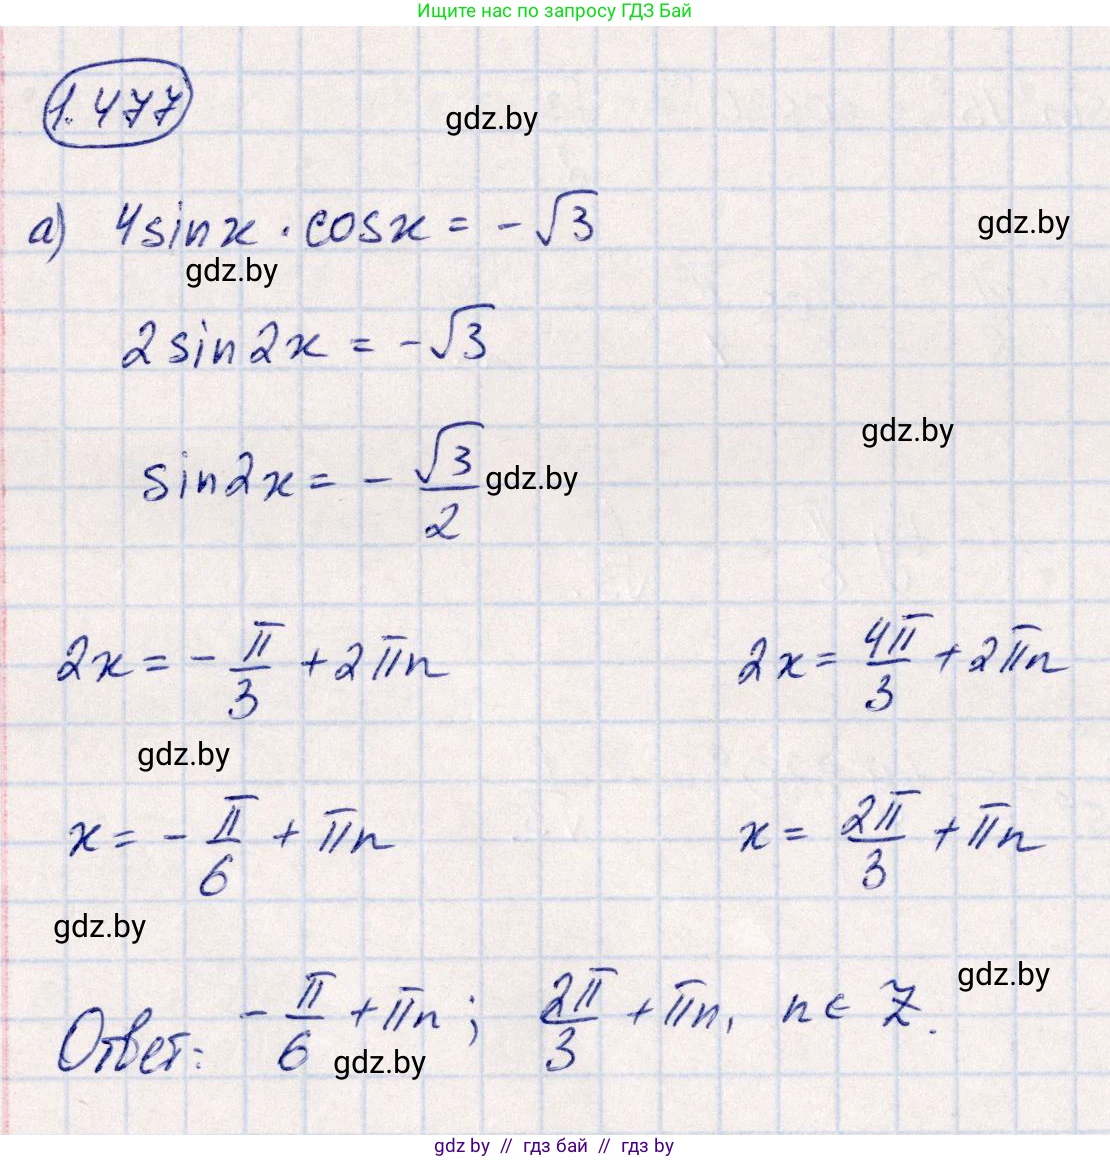 Ищите нас по запросу ГДЗ Бай
1.477
gdz.by
а) 4sinx · cosx = -√3
gdz.by
gdz.by
2sin2x = -√3
gdz.by
sin2x = -√3/2
gdz.by
2x = -π/3 + 2πn    2x = 4π/3 + 2πn
gdz.by
x = -π/6 + πn    x = 2π/3 + πn
gdz.by
gdz.by
Ответ: -π/6 + πn; 2π/3 + πn, n ∈ Z.
gdz.by
gdz by // гдз бай // гдз by